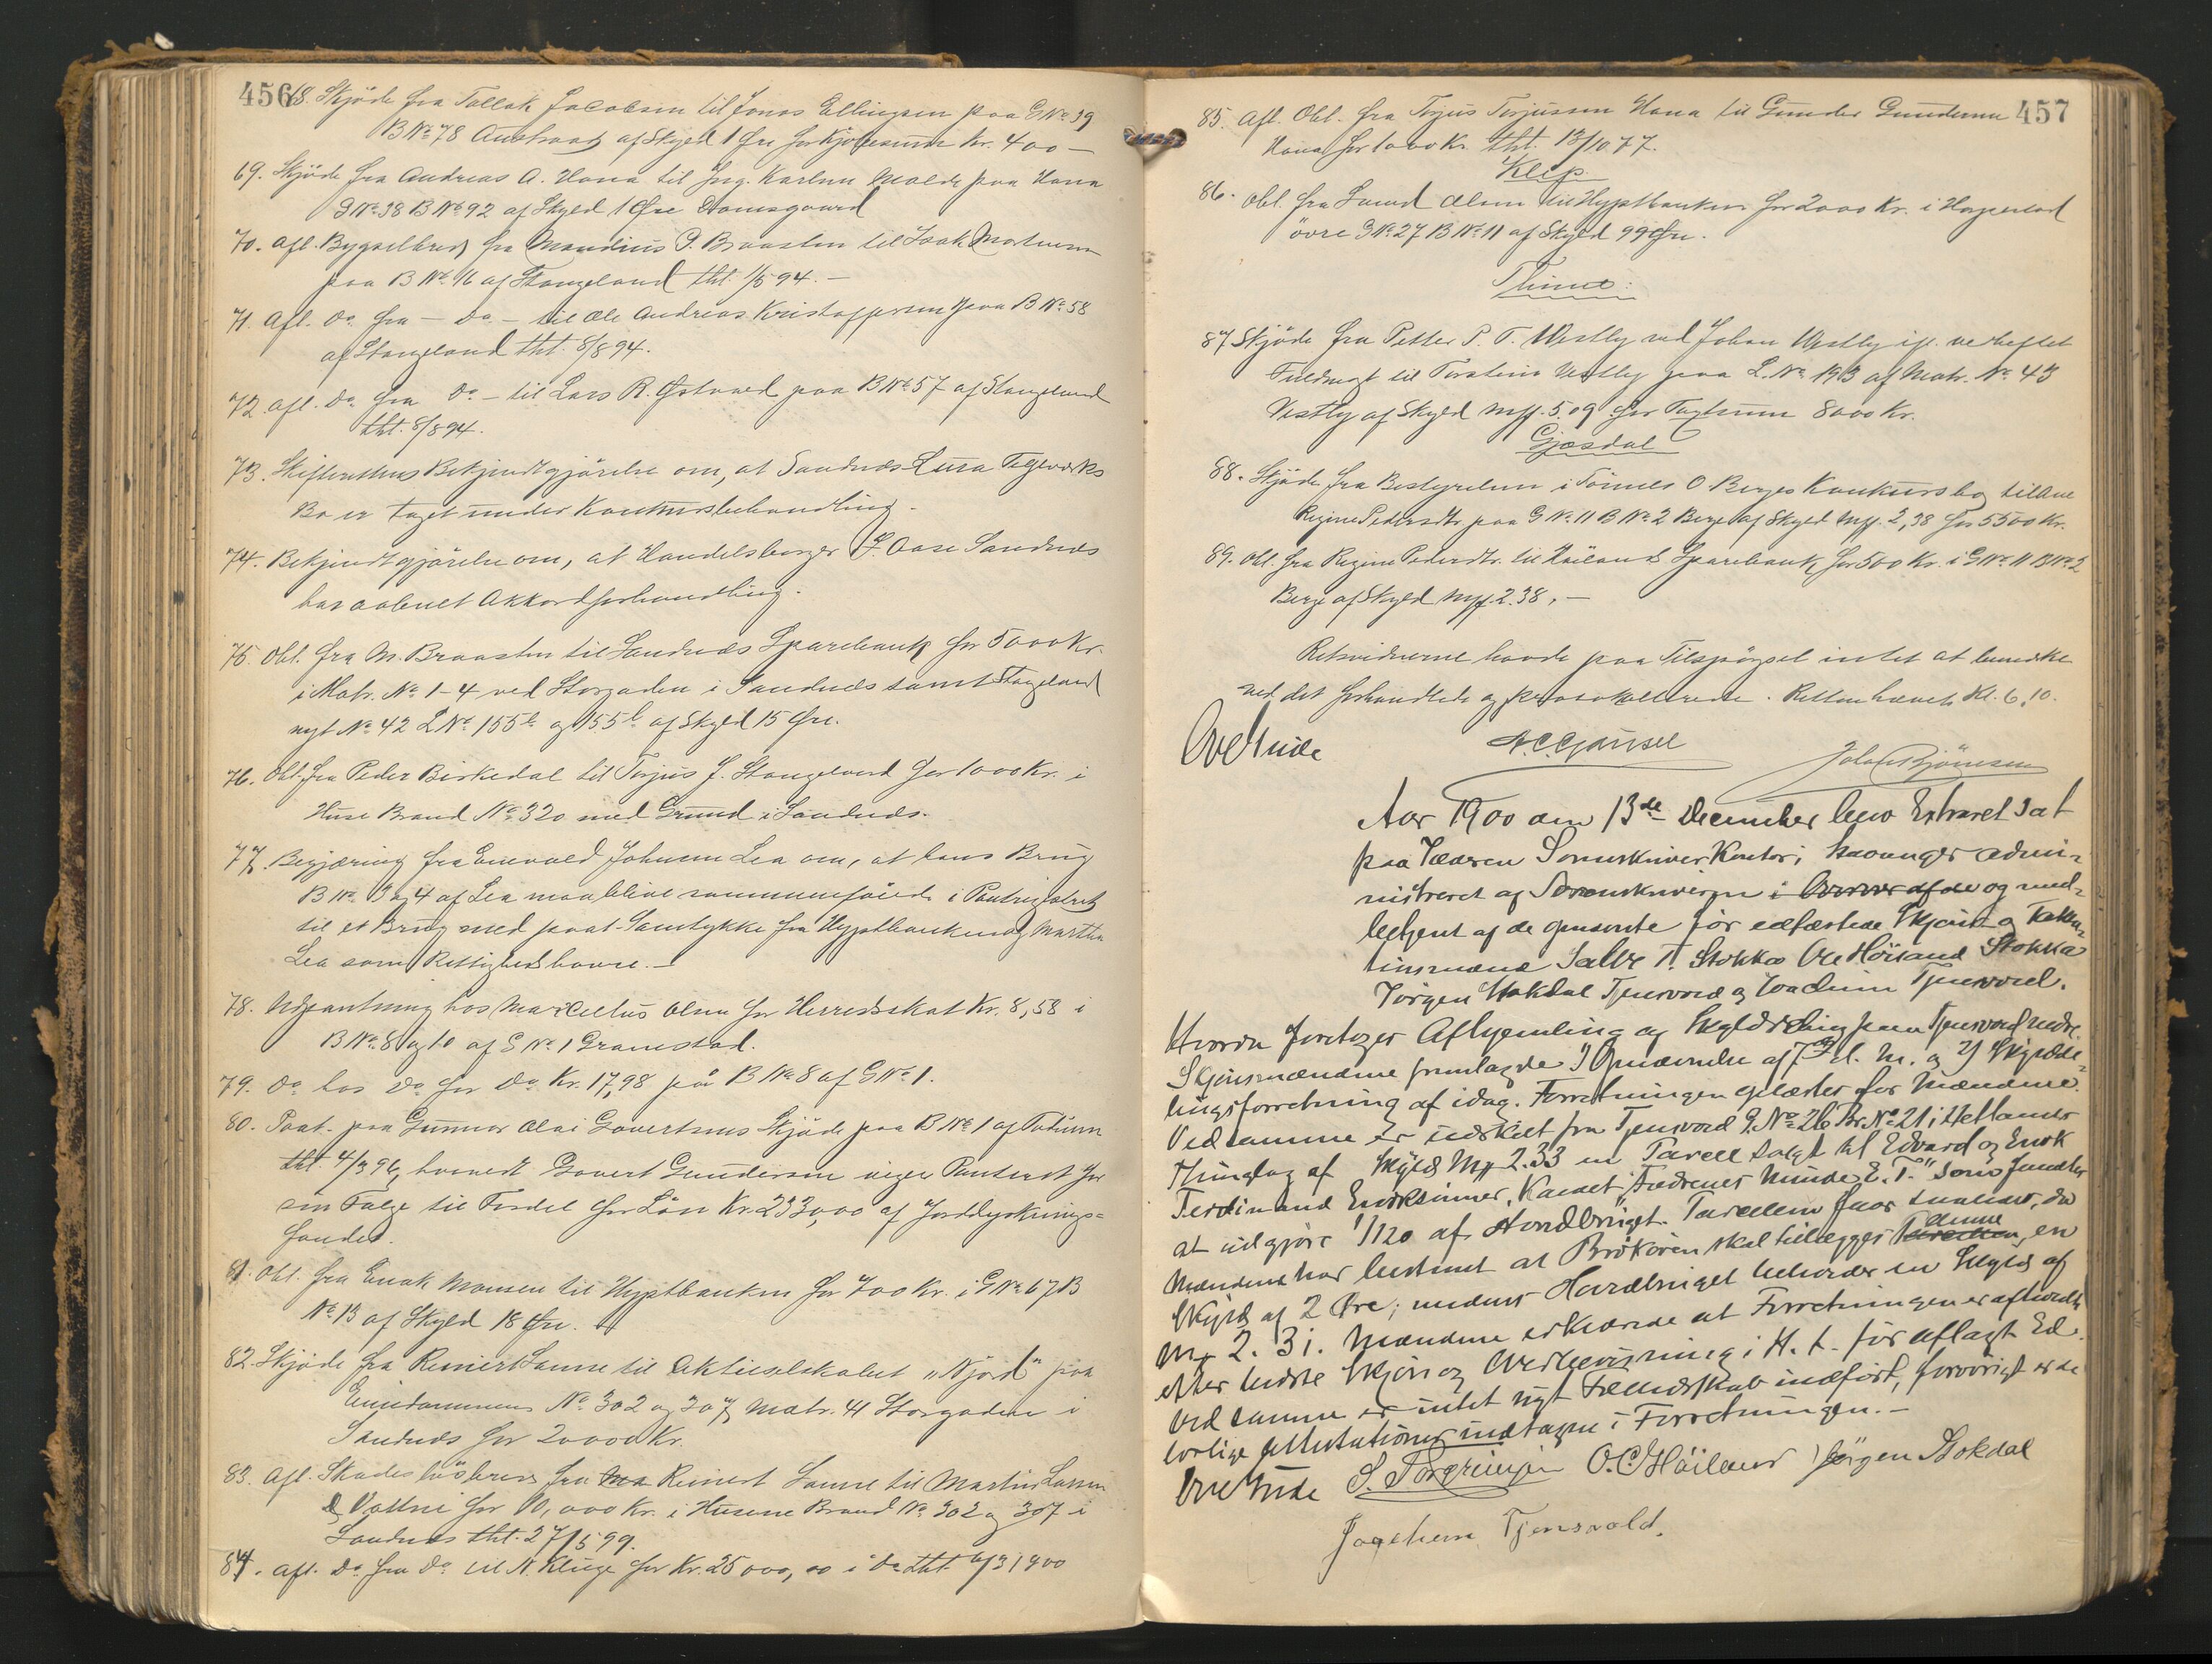 456
68. Skjöde fra Tollak Jacobsen til Jonas Ellingsen paa GNo 39
BNo 78 Austraat af Skyld 1 Øre for Kjøbesum Kr. 400 —
69. Skjöde fra Andreas A. Hana til Ing. Karlsen Molde paa Hana
GNo 38 BNo 92 af Skyld 1 Øre
70. Afl. Bygselbrev fra Mandius P. Braasten til Isak Mortensen
paa BNo 16 af Stangeland tht. 1/5 94. —
71. Afl. Do fra — Do — til Ole Andreas Kristoffersen paa BNo 58
af Stangeland tht. 8/8 94.
72. Afl. Do fra Do — til Lars R. Østraad paa BNo 57 af Stangeland
tht. 8/8 94.
73. Skifterettens Bekjendtgjörelse om, at Sandnes Lura Teglværks
Bo er taget under Konkursbehandling.
74. Bekjendtgjörelse om, at Handelsborger F. Aase Sandnes
har aabnet Akkordforhandling.
75. Obl. fra M. Braasten til Sandnæs Sparebank for 5000 Kr.
i Matr. No 1-4 ved Storgaden i Sandnes samt Stangeland
nyt No 42 LNo 155b og 155l af Skyld 15 Øre.
76. Obl. fra Peder Birkedal til Torjus J. Stangeland for 1000 Kr. i
Huse Brand No 320 med Grund i Sandnes.
77. Begjæring fra Enevald Johnsen Lea om, at hans Brug
BNo 3 og 4 af Lea maa blive sammenföiede i Pantregistret
til et Brug med paat. Samtykke fra Hypthbanken og Marthe
Lea som Rettighedshavere. —
78. Udpantning hos Marcelius Olsen for Herredsskat Kr. 8,58 i
BNo 8 og 10 af GNo 1 Gramstad.
79. Do hos Do for Do Kr. 17,98 på BNo 8 af GNo 1.
80. Paat. paa Gunnar Olai Govertsens Skjöde paa BNo 1 af
tht 4/3 96, hvorved Govert Gundersen viger Panteret for
sin Folge til Fordel for Lån Kr. 2330,00 af Jorddyrknings=
fondet.
81. Obl. fra Enok Monsen til Hyptbanken for 400 Kr. i GNo 67 B
No 13 af Skyld 18 Øre.
82. Skjöde fra Reinert Sanne til Aktieselskabet „Njord" paa
Eiendommen No 302 og 307 Matr. 41 Storgaden i
Sandnes for 20000 Kr.
83. Afl. Skadeslösbrev fra Reinert Sanne til Martin Larsen
& Vatne for 10,000 Kr. i Husene Brand No 302 og 307 i
Sandnes tht. 27/5 99.
84. Afl. Do fra Do til N. Kluge for Kr. 25000,00 i Do tht. 6/3 1900
457
85. Afl. Obl. fra Torjus Torjussen Hana til Gunder Gundersen
Hana for 1000 Kr. tht. 13/10 77.
Klep
86. Obl. fra Svend Olsen til Hyptbanken for 2000 Kr. i Horpestad
övre GNo 27 BNo 11 af Skyld 99 Øre.
Thime:
87 Skjöde fra Petter P. T. Westly ved Johan Westly if. vedheftet
Fuldmagt til Torstein Westly paa L.No 193 af Matr. No 43
Vestly af Skyld Mk. 5.09 for Taxtsum 8000 Kr.
Gjæsdal
88. Skjöde fra Bestyrelsen i Tönnes O. Berges Konkursbo til Ane
Regine Pedersdtr paa GNo 11 BNo 2 Berge af Skyld Mk. 2,38 for 5500 Kr.
89. Obl. fra Regine Pedersdtr. til Höilands Sparebank for 500 Kr. i GNo 11 BNo 2
Berge af Skyld Mk. 2.38. —
Retsvidnerne havde paa Tilspörgsel intet at bemærke
ved det forhandlede og protokollerede. Retten hævet Kl. 6,10.
Ove Gude
Johan Bjönnesen
Aar 1900 den 13de December blev Extraret sat
paa Jæderen Sorenskriver Kontor i Stavanger admi-
nistreret af Sorenskriveren i Overvær af de og med-
betjent af de opnævnte för edfæstede Skjöns og Taksa-
tionsmænd Salve T. Stokka Ole Höiland Stokka
Jörgen Stokdal Tjensvold og Joachim Tjensvold.
Hvorda foretoges Afhjemling og Skylddeling paa Tjensvold nedre.
Skjönsmændene fremlagde 1) Opnævnelse af 7 d. M. og 2) Skylddel-
lingsforretning af idag. Forretningen oplæstes for Mændene.
Ved samme er udskilt fra Tjensvold G.No 26 Br.No 21 i Hetlands
Thinglag af Skyld Mk 2.33 en Parcel solgt til Edvard og Enok
Ferdinand Enoksønner, Kaldet „Fædrenes Minde E. T." som findes
at udgjöre 1/120 af Hovedbruget. Parcellen faar saaledes, da
Mændene har bestemt at Brøkören skal tillægges denne, en
Skyld af 2 Øre; medens Hovedbruget beholder en Skyld af
Mk 2. 31. Mændene erklærede at Forretningen er afholdt
efter bedste Skjön og Overbevisning i H. t. för aflagt Ed.
Ved samme er intet nyt Fællesskab indfört, forövrigt er de
lovlige Attestationer indtagne i Forretningen. —
Ove Gude O. C. Höiland Jörgen Stokdal
Joachim Tjensvold.